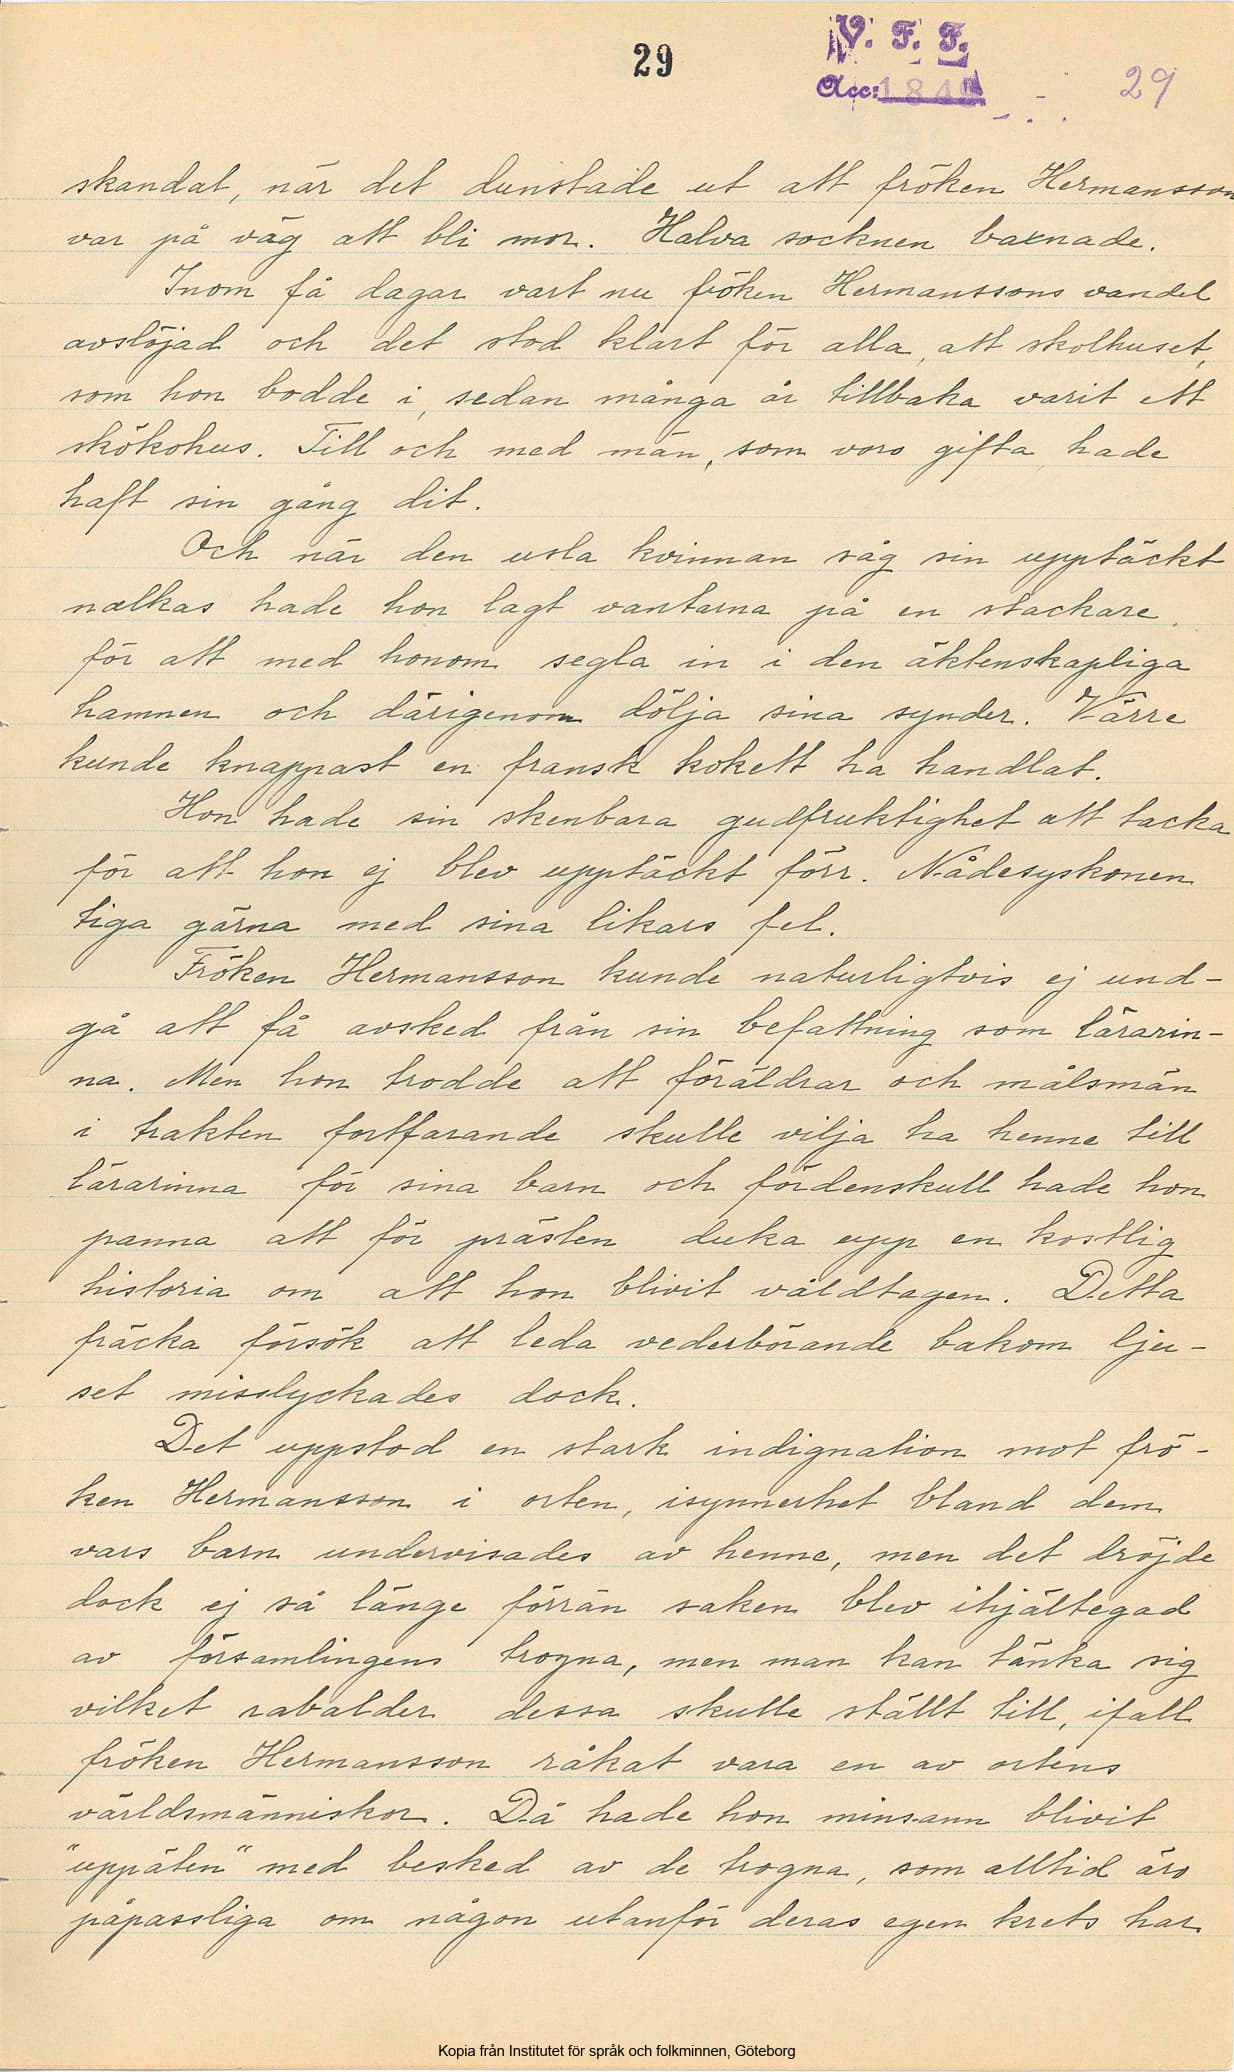 29
V. F. F.
Acc: 1849
29
skandal, när det dunstade ut att fröken Hermansson
var på väg att bli mor. Halva socknen baxnade.
Inom få dagar vart nu fröken Hermanssons vandel
avslöjad och det stod klart för alla, att skolhuset,
som hon bodde i, sedan många år tillbaka varit ett
skökohus. Till och med män, som voro gifta hade
haft sin gång dit.
Och när den usla kvinnan såg sin upptäckt
nalkas hade hon lagt vantarna på en stackare
för att med honom segla in i den äktenskapliga
hamnen och därigenom dölja sina synder. Värre
kunde knappast en fransk kokett ha handlat.
Hon hade sin skenbara gudfruktighet att tacka
för att hon ej blev upptäckt förr. Nådesyskonen
tiga gärna med sina likars fel.
Fröken Hermansson kunde naturligtvis ej und-
gå att få avsked från sin befattning som lärarin-
na. Men hon trodde att föräldrar och målsmän
i trakten fortfarande skulle vilja ha henne till
lärarinna för sina barn och fördenskull hade hon
panna att för prästen duka upp en kostlig
historia om att hon blivit våldtagen. Detta
fräcka försök att leda vederbörande bakom lju-
set misslyckades dock.
Det uppstod en stark indignation mot frö-
ken Hermansson i orten, isynnerhet bland dem
vars barn undervisades av henne, men det dröjde
dock ej så länge förrän saken blev ihjältegad
av församlingens trogna, men man kan tänka sig
vilket rabalder dessa skulle ställt till, ifall
fröken Hermansson råkat vara en av ortens
världsmänniskor. Då hade hon minsann blivit
"uppäten" med besked av de trogna, som alltid äro
påpassliga om någon utanför deras egen krets har
Kopia från Institutet för språk och folkminnen, Göteborg